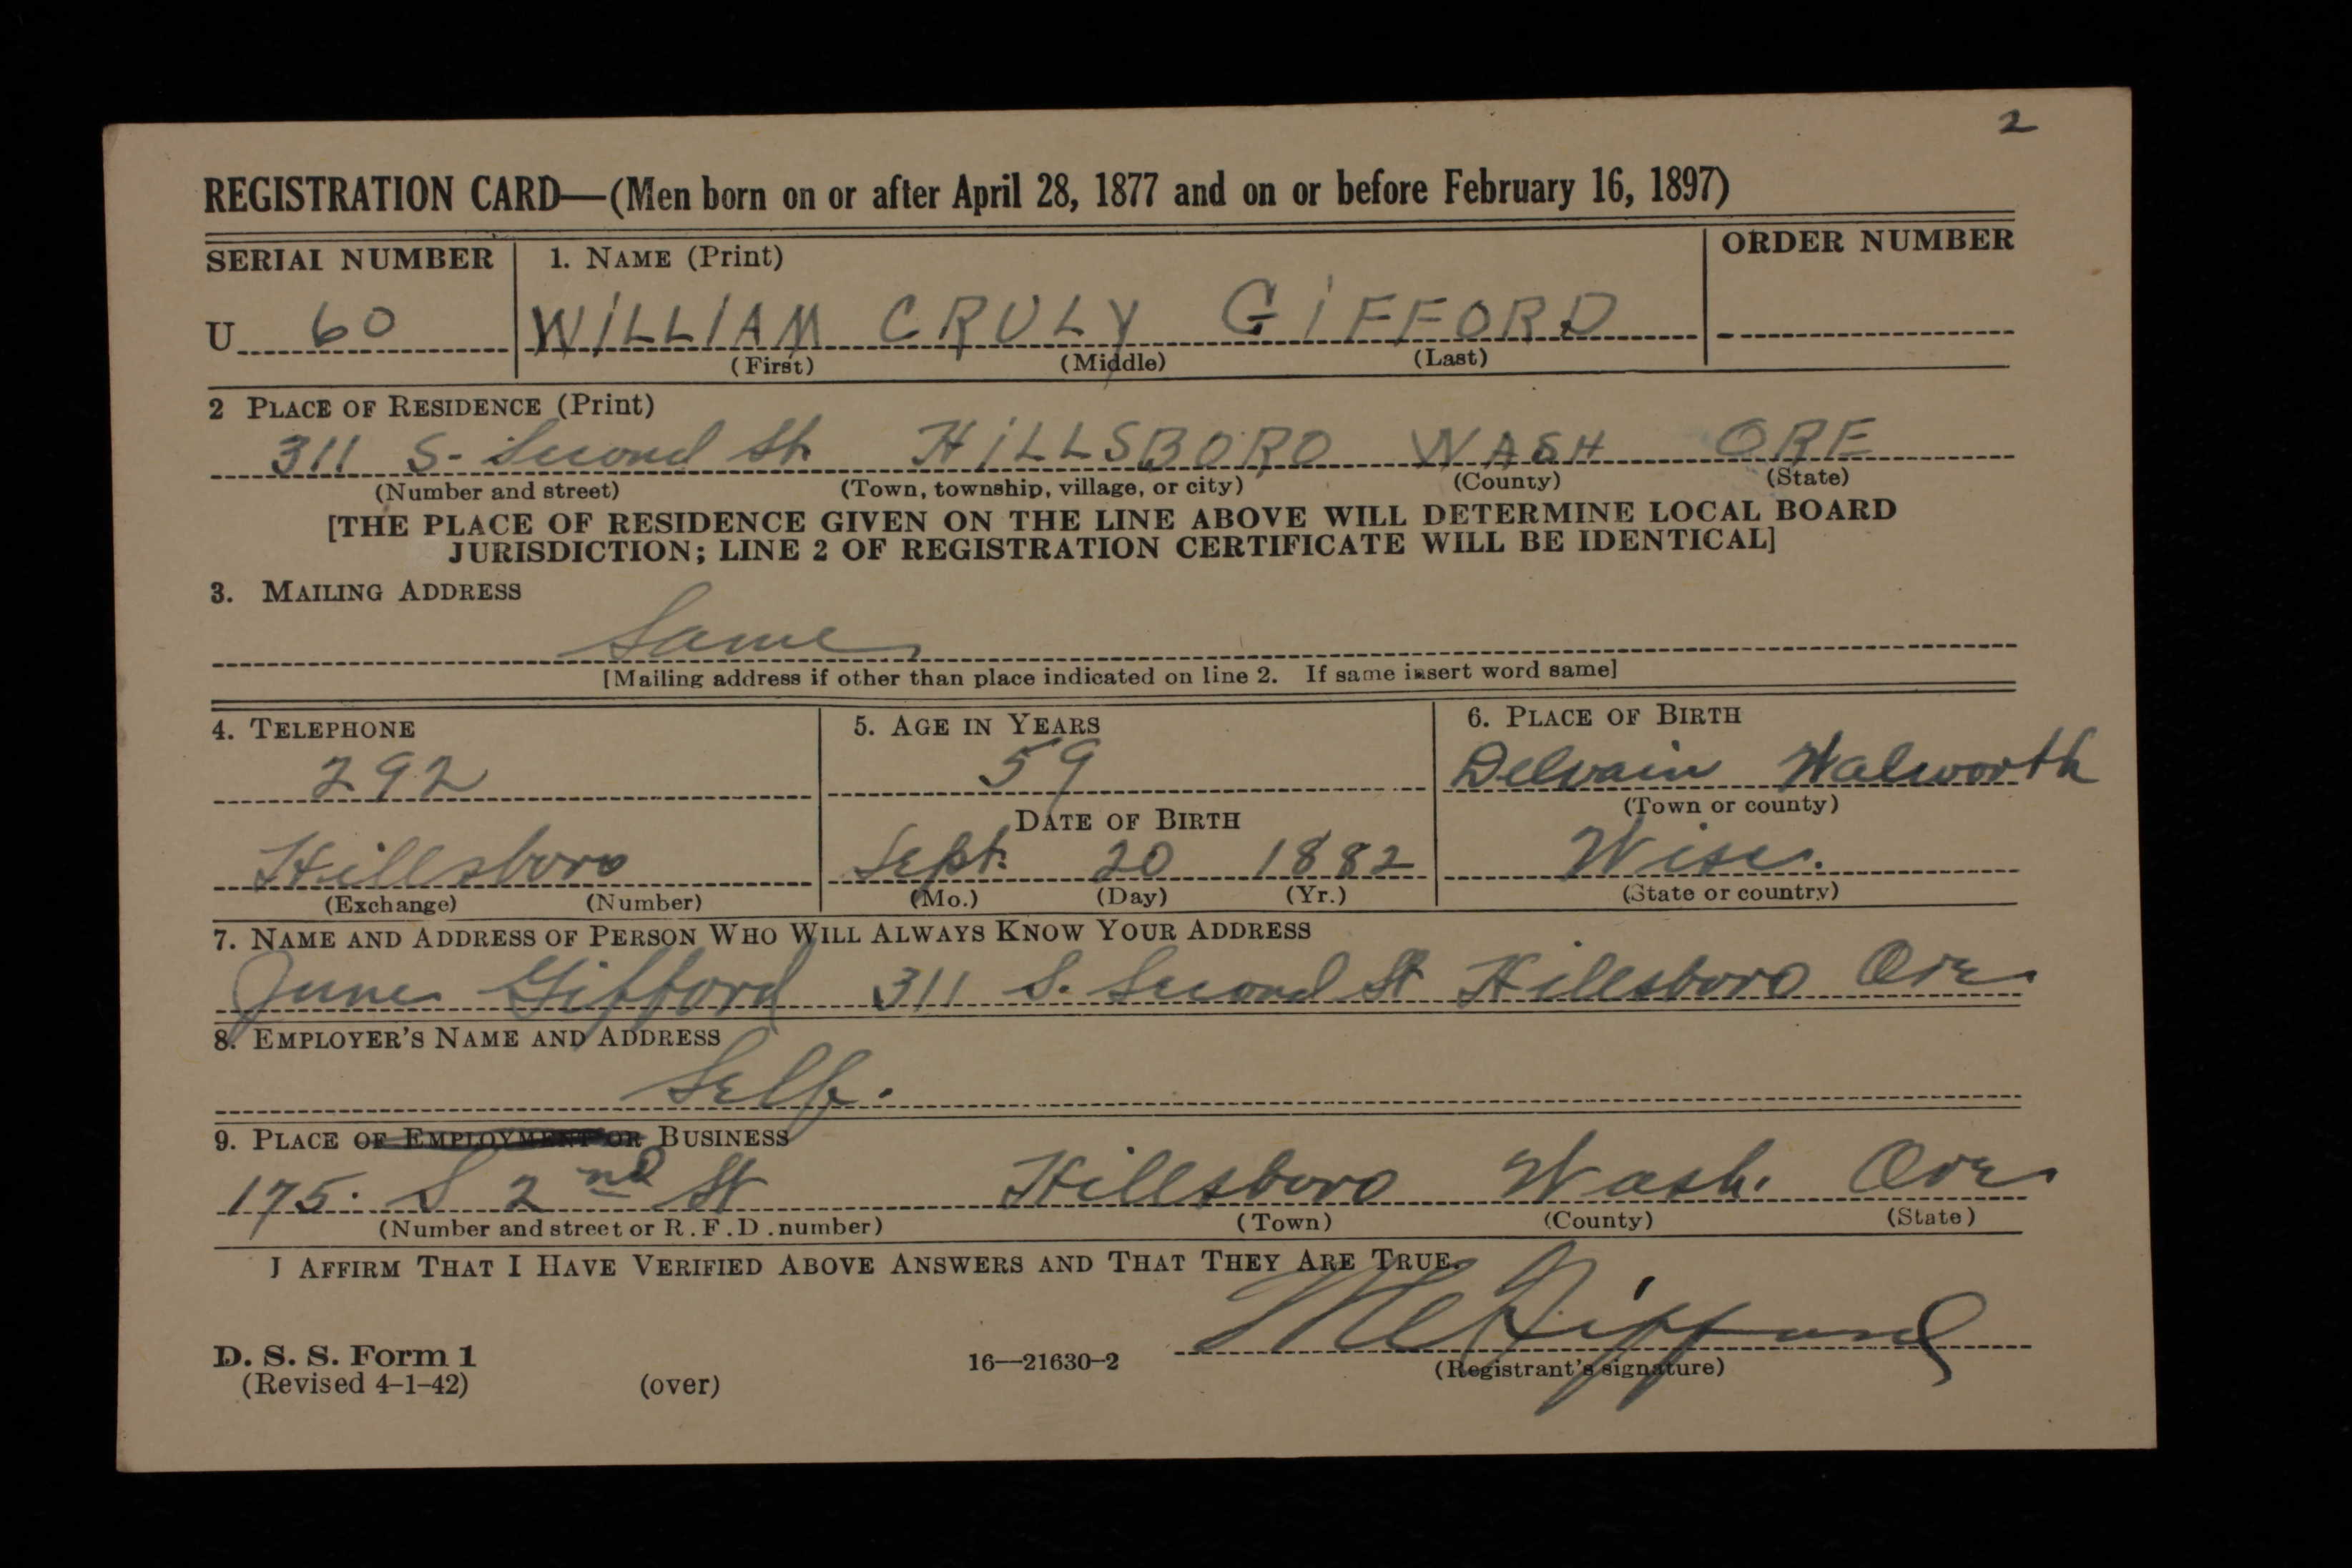 2
REGISTRATION CARD—(Men born on or after April 28, 1877 and on or before February 16, 1897)
SERIAL NUMBER 1. NAME (Print) ORDER NUMBER
U 60 WILLIAM CRULY GIFFORD
(First) (Middle) (Last)
2 PLACE OF RESIDENCE (Print)
311 S. Second St. HILLSBORO WASH ORE
(Number and street) (Town, township, village, or city) (County) (State)
[THE PLACE OF RESIDENCE GIVEN ON THE LINE ABOVE WILL DETERMINE LOCAL BOARD
JURISDICTION; LINE 2 OF REGISTRATION CERTIFICATE WILL BE IDENTICAL]
3. MAILING ADDRESS
Same
[Mailing address if other than place indicated on line 2. If same insert word same]
4. TELEPHONE 5. AGE IN YEARS 6. PLACE OF BIRTH
292 59 Delvain Walworth
(Town or county)
DATE OF BIRTH
Hillsboro Sept. 20 1882 Wisc.
(Exchange) (Number) (Mo.) (Day) (Yr.) (State or country)
7. NAME AND ADDRESS OF PERSON WHO WILL ALWAYS KNOW YOUR ADDRESS
June Gifford 311 S. Second St Hillsboro Ore
8. EMPLOYER'S NAME AND ADDRESS
Self.
9. PLACE OF EMPLOYMENT OR BUSINESS
175. S 2nd St Hillsboro Wash. Ore
(Number and street or R. F. D. number) (Town) (County) (State)
I AFFIRM THAT I HAVE VERIFIED ABOVE ANSWERS AND THAT THEY ARE TRUE.
WC Gifford
D. S. S. Form 1
(Revised 4-1-42) (over) 16—21630-2 (Registrant's signature)